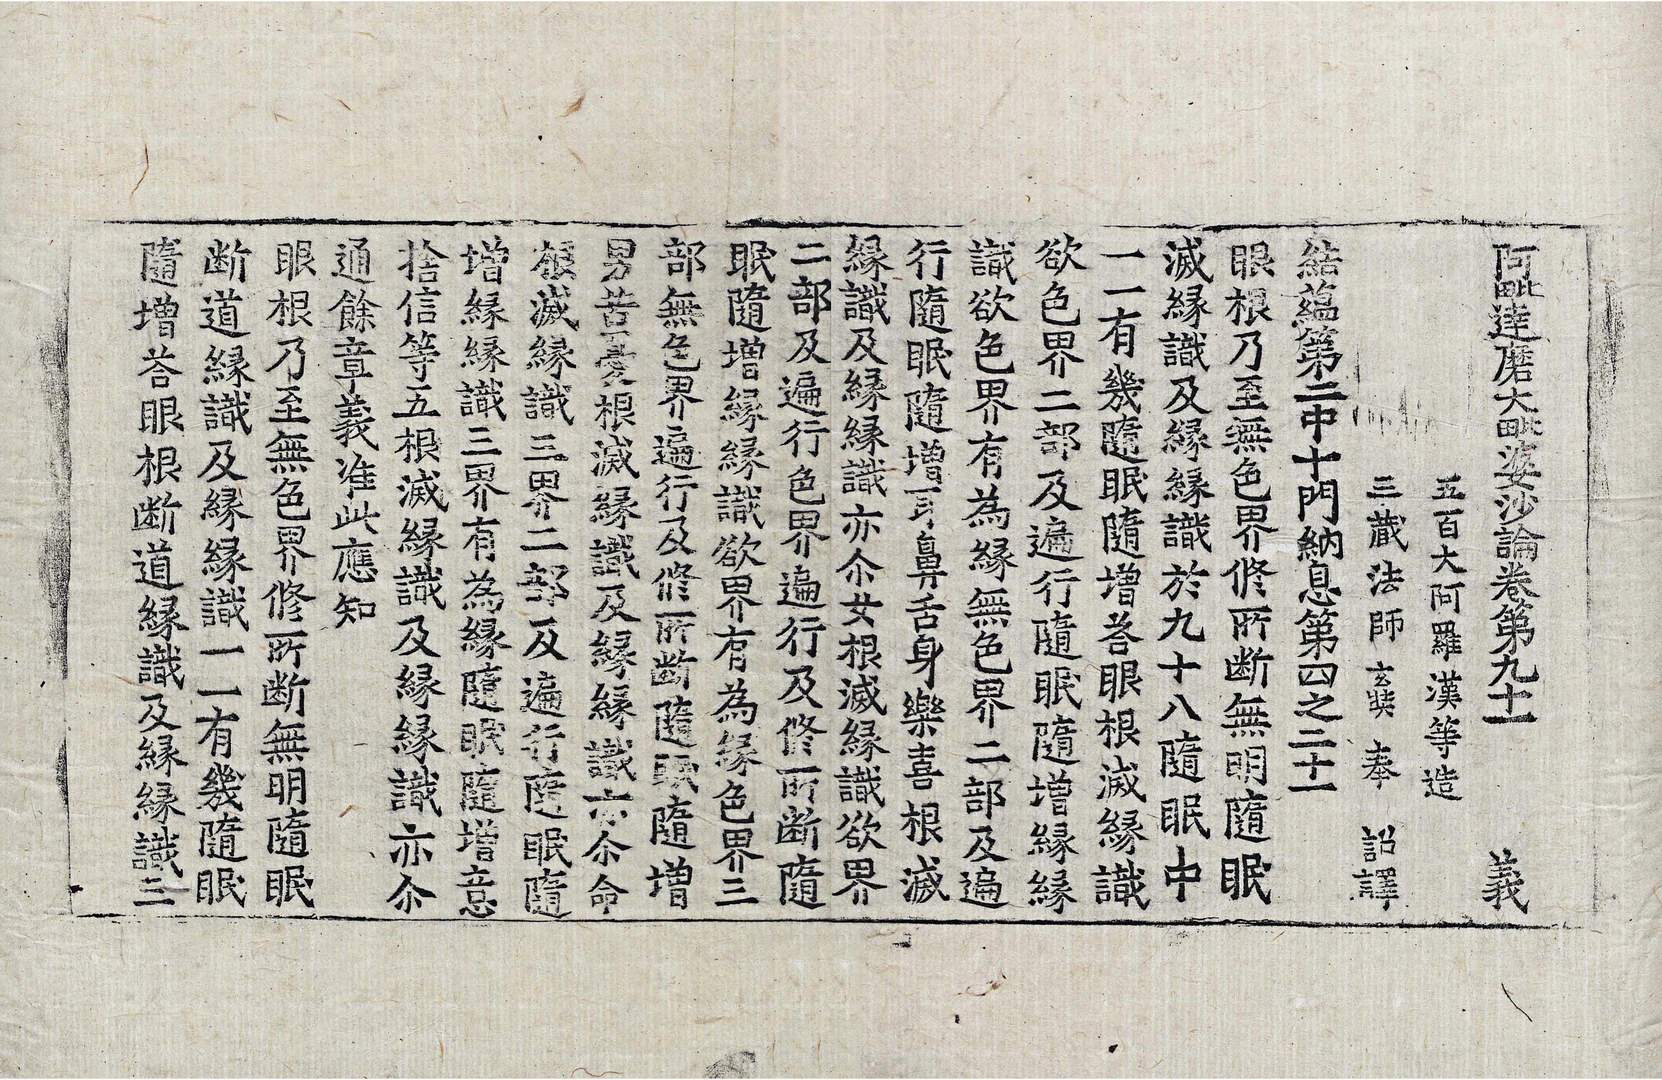 阿毗達磨大毗婆沙論卷第九十一　義
五百大阿羅漢等造
三藏法師玄奘奉　詔譯
結蘊第二中十門納息第四之二十一
眼根乃至無色界修所斷無明隨眠
滅緣識及緣緣識於九十八隨眠中
一一有幾隨眠隨增荅眼根滅緣識
欲色界二部及遍行隨眠隨增緣緣
識欲色界有為緣無色界二部及遍
行隨眠隨增耳鼻舌身樂喜根滅
緣識及緣緣識亦尒女根滅緣識欲界
二部及遍行色界遍行及修所断隨
眠隨增緣緣識欲界有為緣色界三
部無色界遍行及修所断隨眠隨增
男苦憂根滅緣識及緣緣識亦尒命
根滅緣識三界二部及遍行隨眠隨
增緣緣識三界有為緣隨眠隨增意
捨信等五根滅緣識及緣緣識亦尒
通餘章義准此應知
眼根乃至無色界修所断無明隨眠
断道緣識及緣緣識一一有幾隨眠
隨增荅眼根断道緣識及緣緣識三